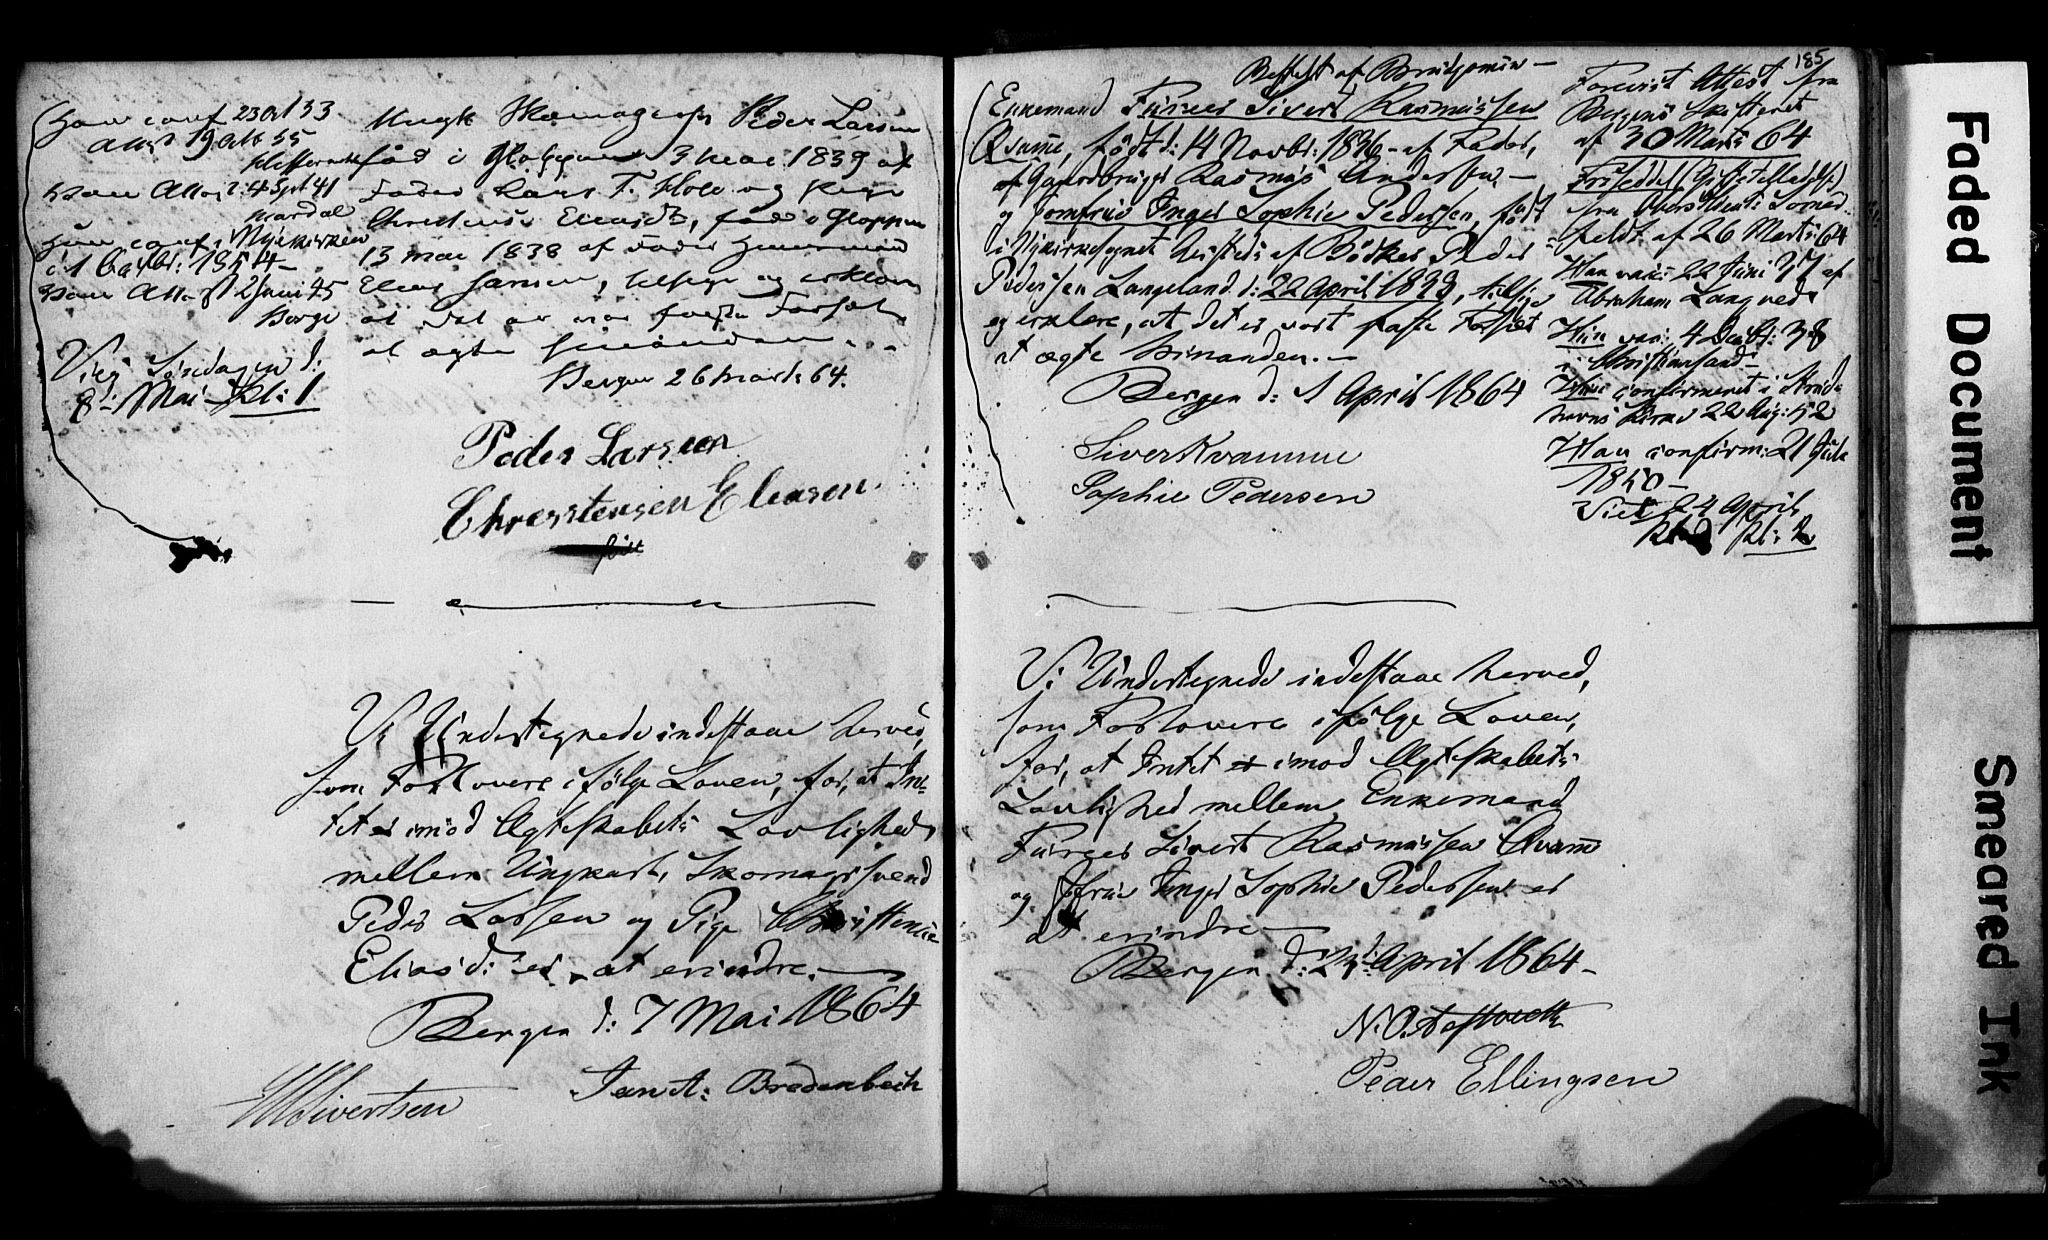 Han conf 23 Oct 53
Attst 19 Octb 55
Han Attst 2: 4 Spt 41
Hun conf. Nykirken
i 1 54
Han Attest 2 Juni 45
Viig Søndagen d:
8: Mai kl: 1
Ungk Skomagersv Peder Larsen
född i Gloppen 3 Mai 1839 af
Fader Lars T. og Pige
Christense Eliasdt, född i Gloppen
13 mai 1838 af Fader Huusmand
Elias Jansen, tilsige og erklære
at det er vor faste Forsæt
at ægte hinanden.
Bergen 26 Marts 64.
Peder Larsen
Chresstensen Eleasen.
född
Vi Undertegnede indestaae herved,
som Forlovere ifølge Loven, for, at In-
tet er imod Ægteskabets Lovlighed
mellem Ungkarl, Skomagersvend
Peder Larsen og Pige Christense
Eliasd: er at erindre.
Bergen d: 7 Mai 1864
Sivertsen
Jan A: Bredenbech
185
Bestilt af Brudgommen
Enkemand Furer Sivert Rasmussen
Qvamme, født d: 14 Novbr: 1836 af Fader,
af Gaardbruger Rasmus Andersen
og Jomfrue Inger Sophie Pedersen, født
i Nykirkesognet hersteds af Bødker Peder
Pedersen Langeland d: 22 April 1833, tilsige
og erklære, at det er vort faste Forsæt
at ægte hinanden.
Bergen d: 1 April 1864
Siver Kvamme
Sophie Pedersen
Forevist Attest fra
Bergens Skifteret
af 30 Marts 64
Friseddel
fra
af 26 Marts 64
Han vac: 22 Juni 37 af
Abraham Langved
Hun vac: 4 Decbr: 38
i Christiansand
Hun confirmeret i
Kirke 22 Aug: 52
Han confirm: 21
1850
Viet 24 April
kl: 2
Vi Undertegnede indestaae herved,
som Forlovere ifølge Loven,
for, at Intet er imod Ægteskabets
Lovlighed mellem Enkemand
Furer Sivert Rasmussen Qvamme
og Jfrue Inger Sophie Pedersen er
at erindre
Bergen d: 23 April 1864
N. O.
Peder Ellingsen
Faded Document
Smeared Ink